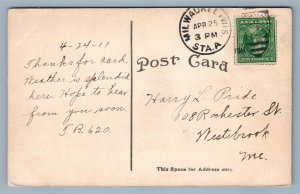 MILWAUKEE, WIS.
APR 25
3 PM
STA. A
4-24-11
Thanks for card.
Weather is splendid
here. Hope to hear
from you soon.
J.B. 620.
Post Card
Harry L. Pride
108 Rochester St.
Westebrook
Me.
This Space for Address only.